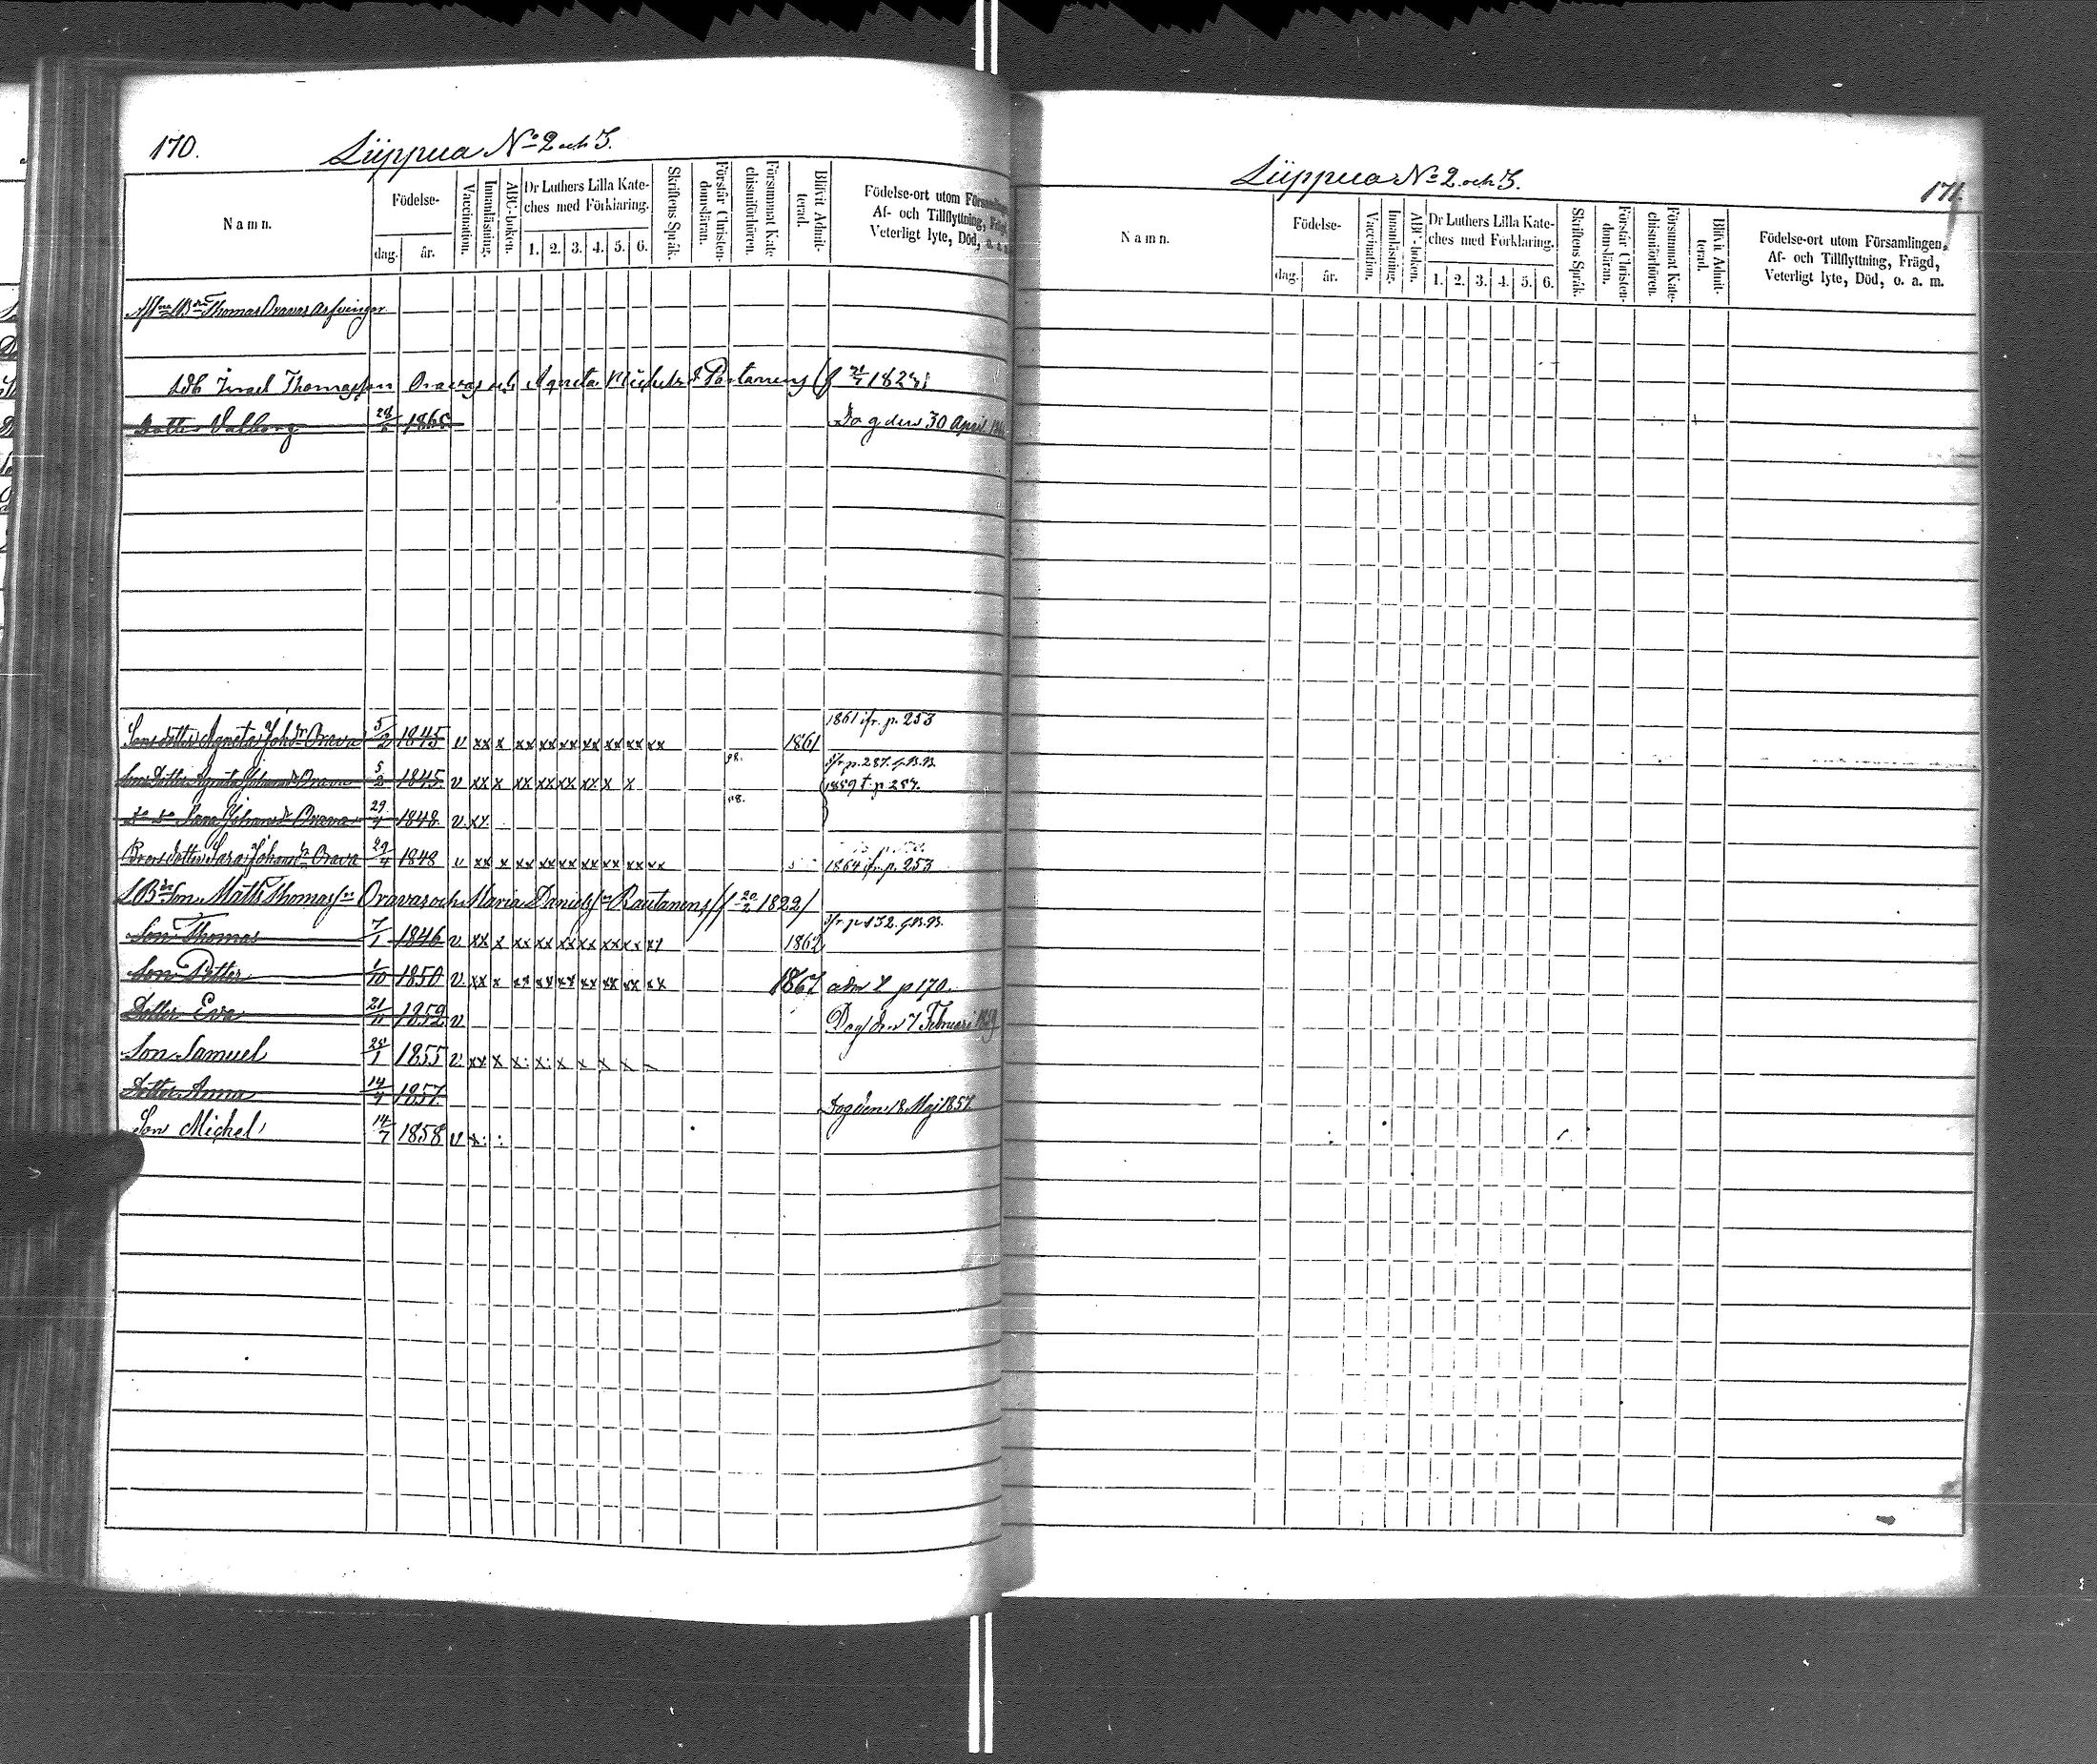 170.
Liippua No 2 och 3.
Namn.
Födelse-
dag.
år.
Vaccination.
Innanläsning.
ABC-boken.
Dr Luthers Lilla Kate-
ches med Förklaring.
1. 2. 3. 4. 5. 6.
Skriftens Språk.
Förstår Christen-
domsläran.
Försummat Kate-
chismiförhören.
Blifvit Admit-
terad.
Födelse-ort utom Församlingen
Af- och Tillflyttning, Frägd,
Veterligt lyte, Död, o. a. m.
Thomas Oravas Arfvingar
Israel Thomasson Oravas och Agneta Michelsd:r
Dotter Valborg 1865 Dog den 30 April
1861 ifr. p. 253
Sons dotter Agneta Joh:dr Orava 5/2 1845 v xx x xx xx xx xx xx xx xx 1861
ifr. p. 287. g.B.B.
Sons Dotter Agneta Johansd:r Orava 5/2 1845 v xx x xx xx xx xx x x 1859 t. p. 257.
Do Do Sara Johansdr Orava 29/4 1848 v. xx
Brors dotter Sara Johans dr Orava 29/4 1848 v xx x xx xx xx xx xx xx xx 1864 ifr. p. 253
Son Matts Thomass:n Oravas och Maria Danielsd:r Rautanens (f 20/2 1822)
ifr. p 132. g.B.B.
Son Thomas 7/1 1846 v xx x xx xx xx xx xx xx xx 1862
Son Petter 1/10 1850 v. xx x xx xx xx xx xx xx xx 1867 adm p 170.
Dotter Eva 21/11 1852 v Dog den 7 Februari
Son Samuel 1855 v. xx x x: x: x x x x
Dotter Anna 14/4 1857. Dog den 18 Maj 1857.
Son Michel 14/7 1858 v x:
Liippua No 2. och 3.
171.
Namn.
Födelse-
dag.
år.
Vaccination.
Innanläsning.
ABC-boken.
Dr Luthers Lilla Kate-
ches med Förklaring.
1. 2. 3. 4. 5. 6.
Skriftens Språk.
Förstår Christen-
domsläran.
Försummat Kate-
chismiförhören.
Blifvit Admit-
terad.
Födelse-ort utom Församlingen,
Af- och Tillflyttning, Frägd,
Veterligt lyte, Död, o. a. m.